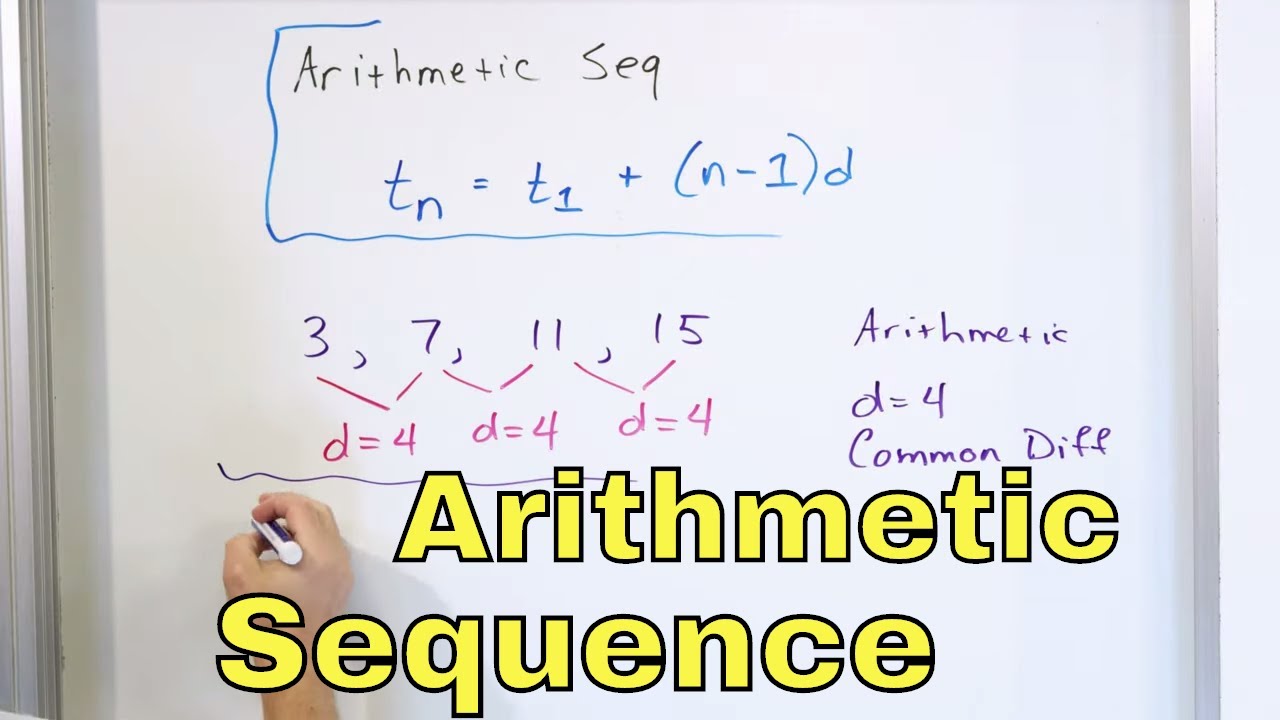 Arithmetic Seq
tn = t1 + (n-1)d
3, 7, 11, 15
d=4 d=4 d=4
Arithmetic
d=4
Common Diff
Arithmetic
Sequence